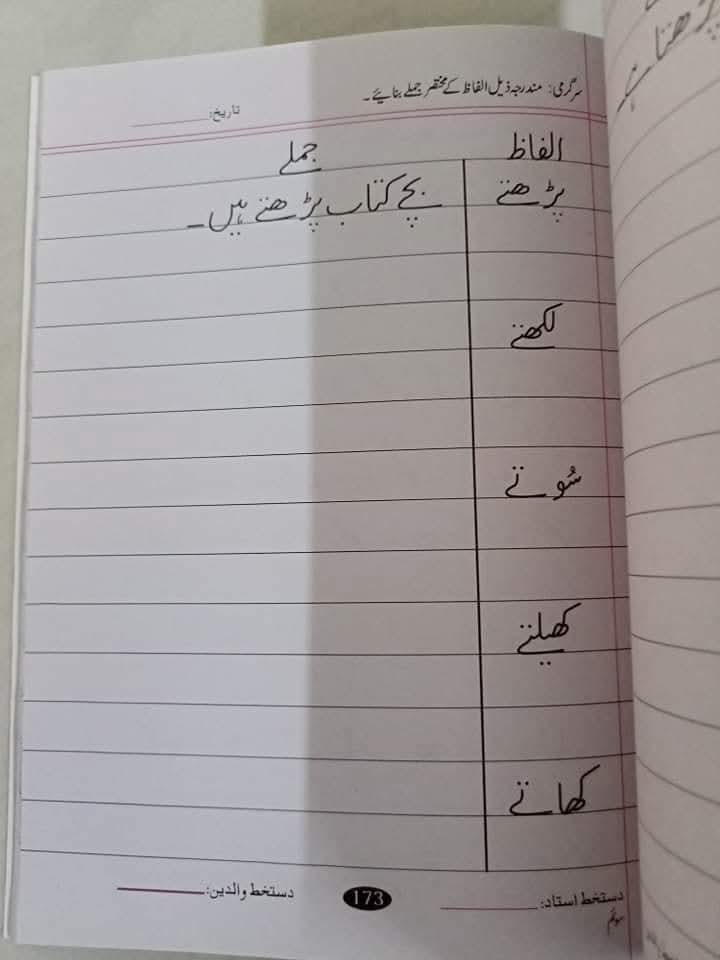 سرگرمی: مندرجہ ذیل الفاظ کے مختصر جملے بنائیے۔
تاریخ:
الفاظ جملے
پڑھتے بچے کتاب پڑھتے ہیں۔
لکھتے
سُوتے
کھیلتے
کھاتے
دستخط استاد: 173 دستخط والدین:
سوئم
پڑھتا ہے